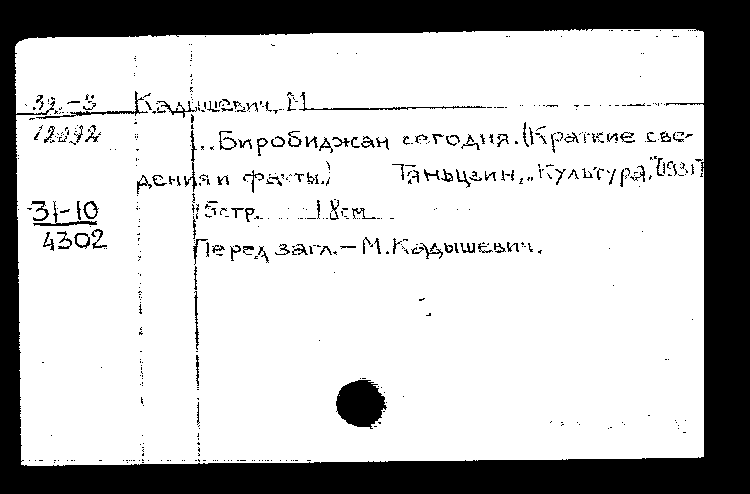 32-5 Кадышевич, М.
12092 ...Биробиджан сегодня. (Краткие све-
дения и факты.) Таньцзин, „Культура", [1931]
31-10 15стр. 18см.
4302 Перед загл. – М. Кадышевич.